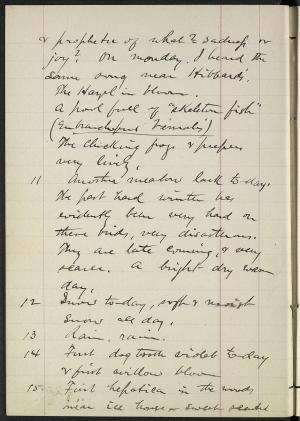 & prophetic of what? sadness or
joy? On monday, I heard the
same song near Hibbards.
The Hazel in bloom.
A pool full of "skeleton fish"
(Eubranchipus Vernalis)
The clucking frogs & peepers
very lively,
11 Another meadow lark to-day.
The past hard winter has
evidently been very hard on
these birds, very disasterous.
They are late coming, & very
scarce. A bright dry warm
day,
12 Snow to-day, soft & moist
snow all day,
13 Rain, rain.
14 First dog tooth violet to-day
& first willow bloom
15 First hepatica in the woods
near ice house - sweet scented